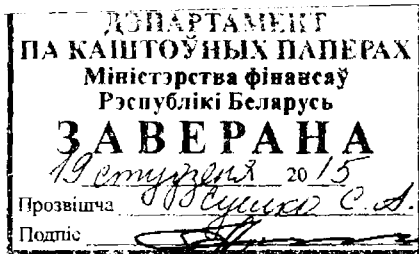 ДЭПАРТАМЕНТ
ПА КАШТОЎНЫХ ПАПЕРАХ
Міністэрства фінансаў
Рэспублікі Беларусь
ЗАВЕРАНА
19 студзеня 2015
Прозвішча Сушко С. А.
Подпіс